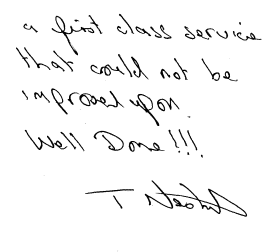 a first class service
that could not be
improved upon.
Well Done!!!
T